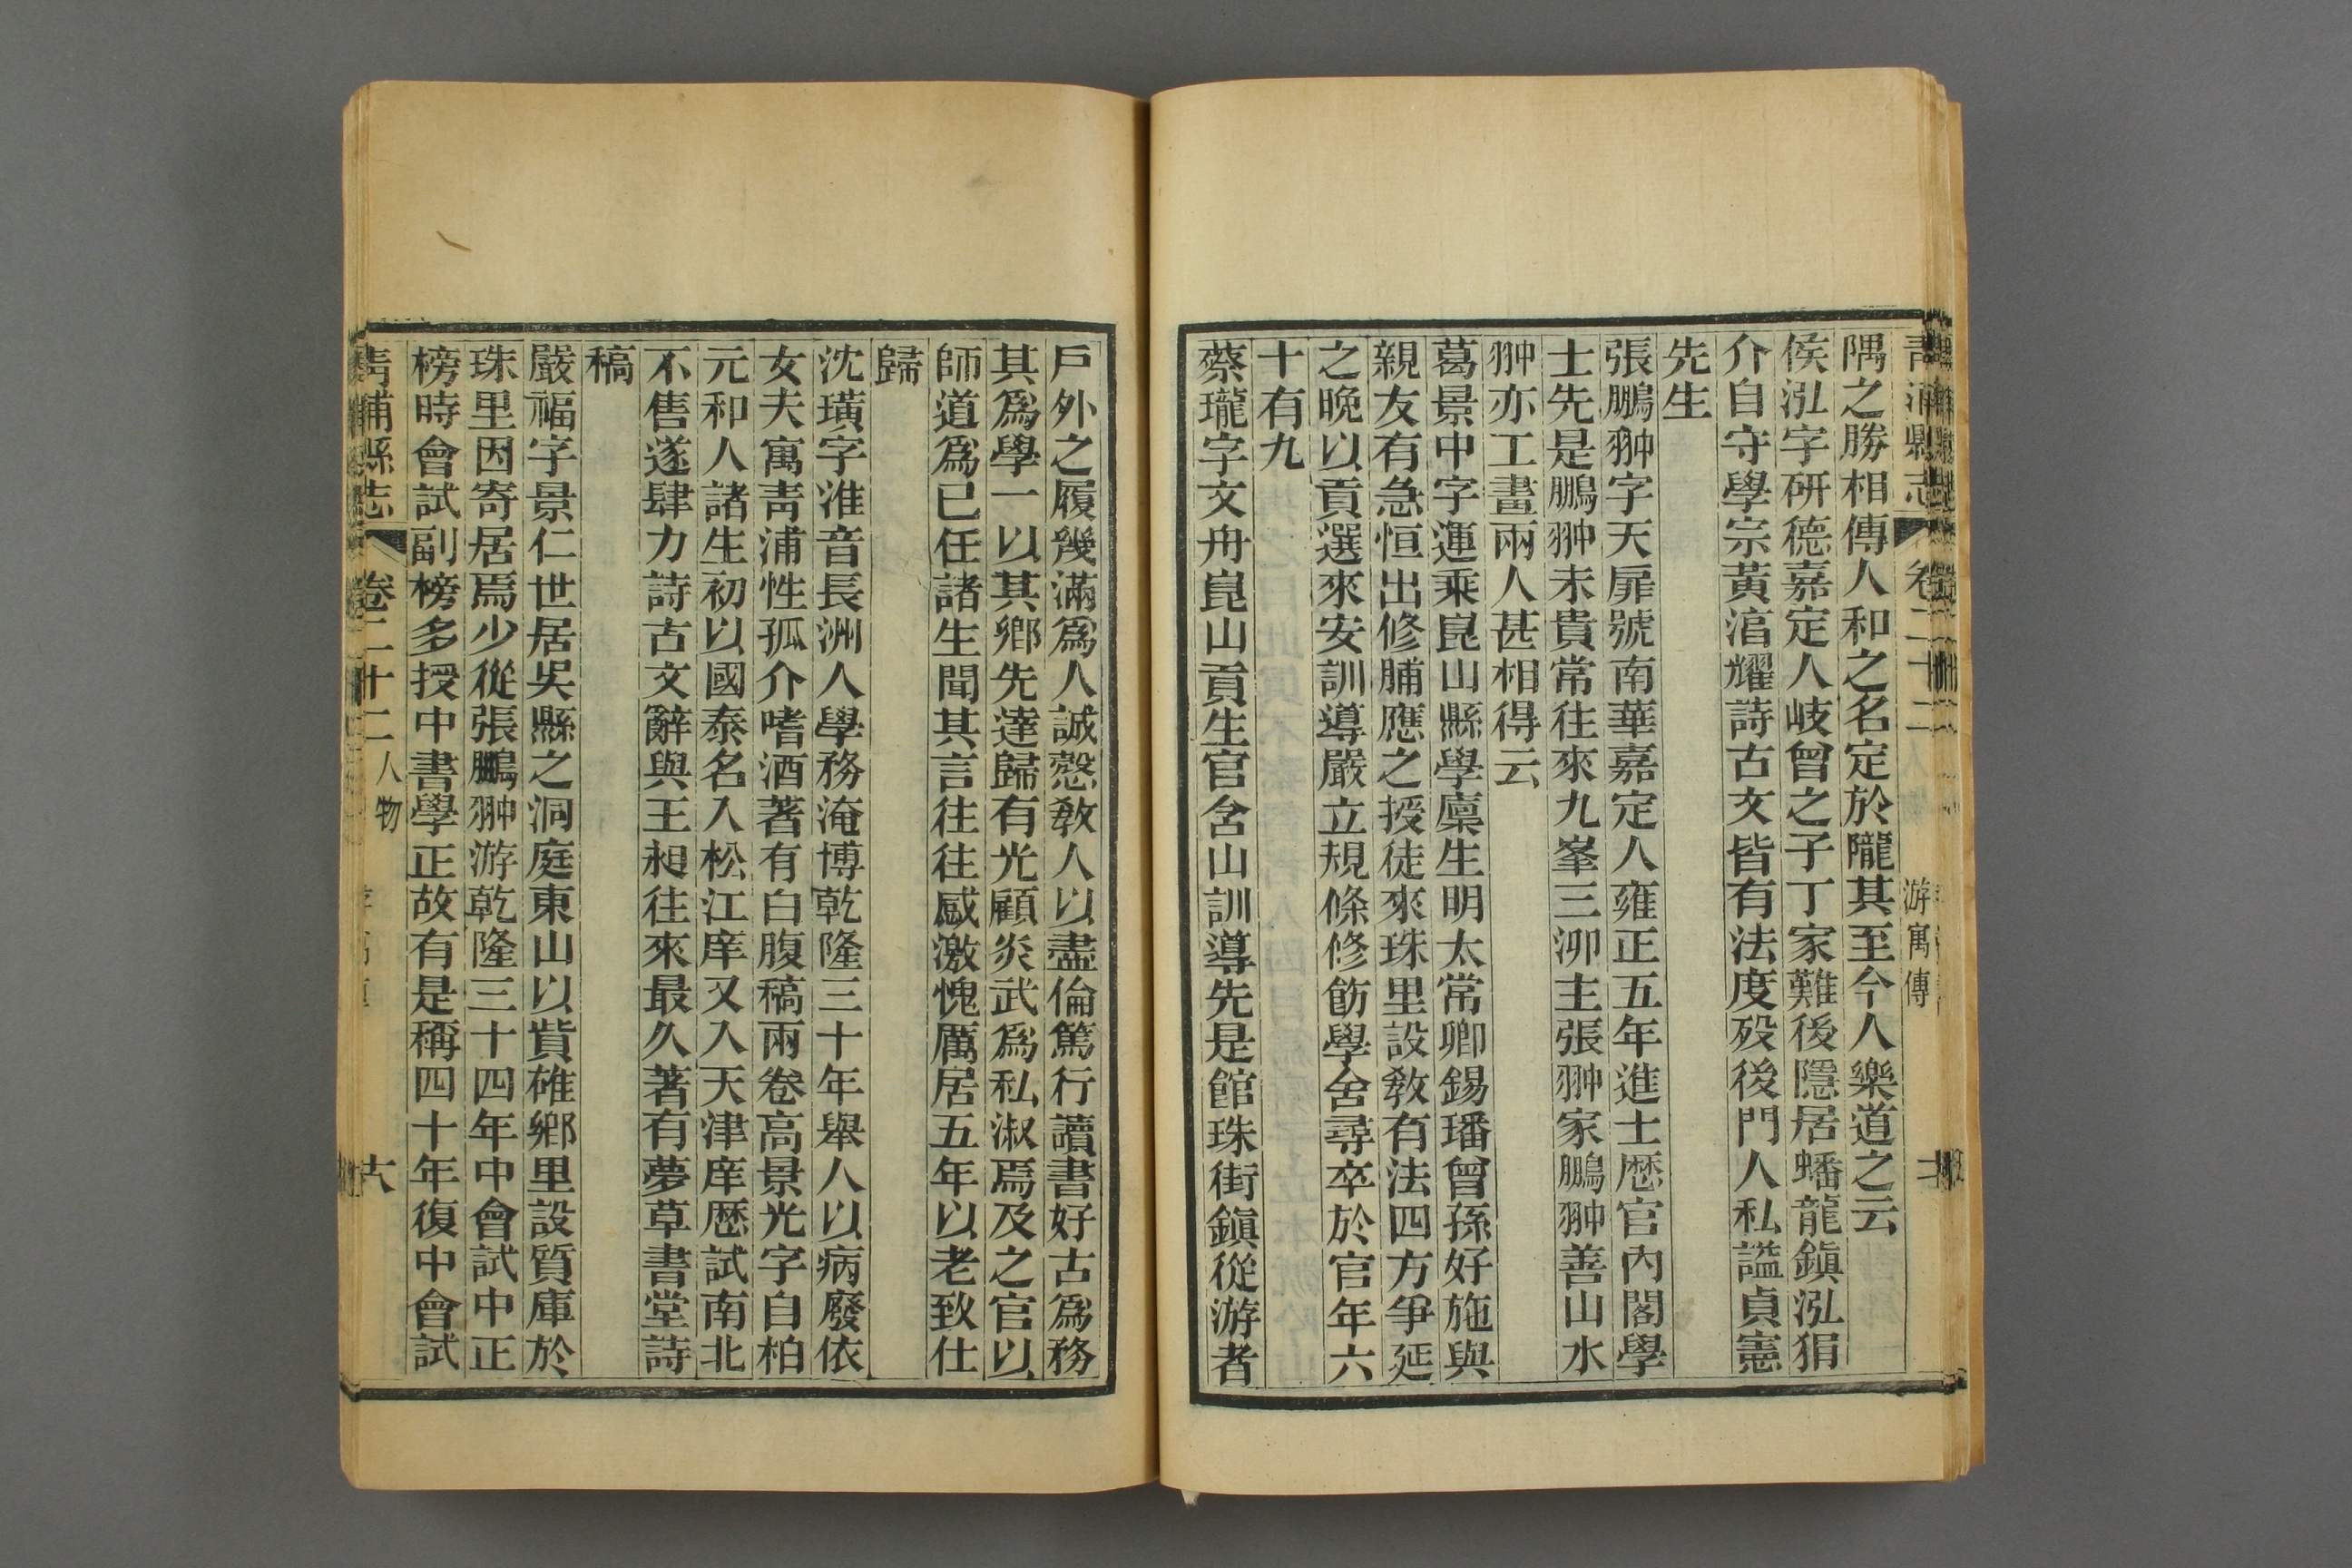 隅之勝相傳人和之名定於隴其至今人樂道之云
侯泓字研德嘉定人岐曾之子丁家難後隱居蟠龍鎮泓狷
介自守學宗黃㴋耀詩古文皆有法度歿後門人私謚貞憲
先生
張鵬翀字天扉號南華嘉定人雍正五年進士歷官內閣學
士先是鵬翀未貴常往來九峯三泖主張翀家鵬翀善山水
翀亦工畫兩人甚相得云
葛景中字運乘崑山縣學廩生明太常卿錫璠曾孫好施與
親友有急恒出修脯應之授徒來珠里設敎有法四方爭延
之晚以貢選來安訓導嚴立規條修飭學舍尋卒於官年六
十有九
蔡瓏字文舟崑山貢生官含山訓導先是館珠街鎮從游者
戶外之履幾滿爲人誠愨敎人以盡倫篤行讀書好古爲務
其爲學一以其鄉先達歸有光顧炎武爲私淑焉及之官以
師道爲已任諸生聞其言往往感激愧厲居五年以老致仕
歸
沈璜字淮音長洲人學務淹博乾隆三十年舉人以病廢依
女夫寓靑浦性孤介嗜酒著有白腹稿兩卷高景光字自柏
元和人諸生初以國泰名入松江庠又入天津庠歷試南北
不售遂肆力詩古文辭與王昶往來最久著有夢草書堂詩
稿
嚴福字景仁世居吳縣之洞庭東山以貲碓鄉里設質庫於
珠里因寄居焉少從張鵬翀游乾隆三十四年中會試中正
榜時會試副榜多授中書學正故有是稱四十年復中會試
靑浦縣志 卷二十二 人物
青浦縣志 卷二十二 游寓傳